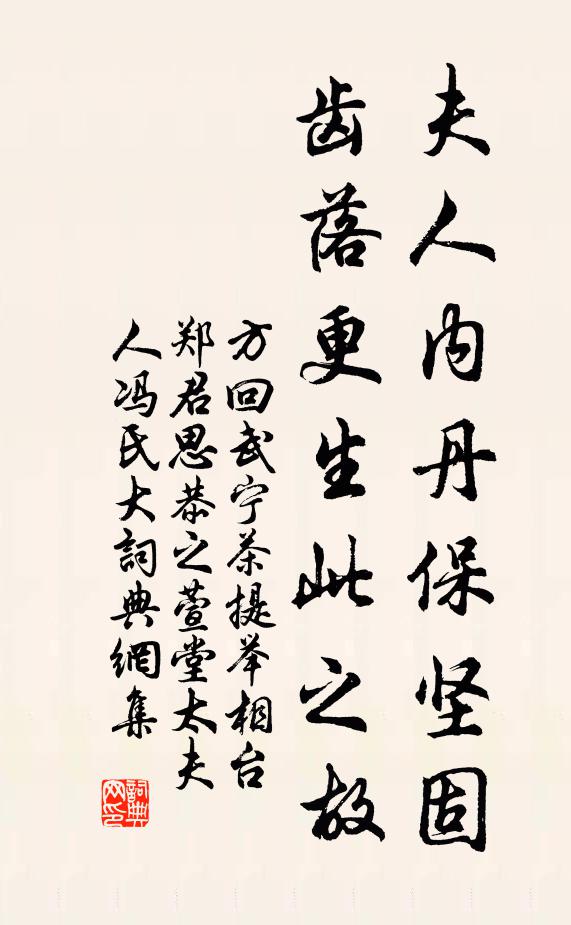 夫人内丹保坚固
齿落更生此之故
方回武宁茶提举相台
郑君思恭之萱堂太夫
人冯氏大詞典網集
詞典
网印